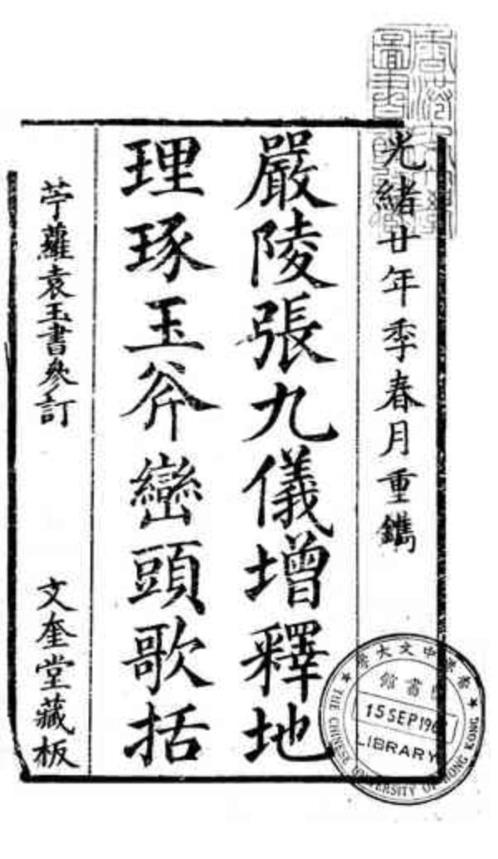 光緒廿年季春月重鐫
嚴陵張九儀增釋地
理琢玉斧巒頭歌括
苧蘿袁玉書參訂
文奎堂藏板
香港中文大學
圖書館
15 SEP 196
LIBRARY
THE CHINESE UNIVERSITY OF HONG KONG